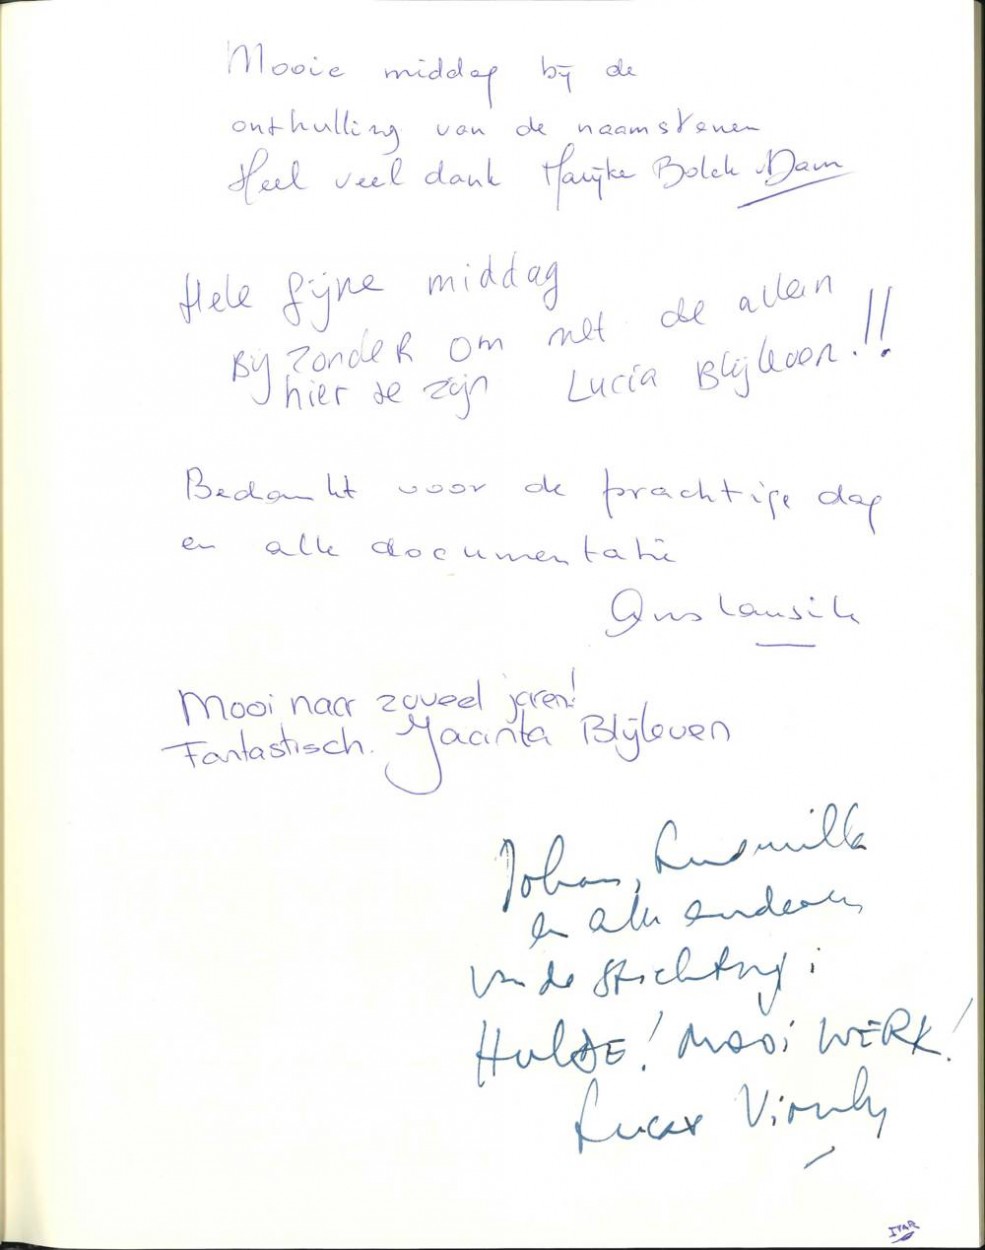 Mooie middag bij de
onthulling van de naamstenen
Heel veel dank Marijke Bolck Dam
Hele fijne middag
Bijzonder om met de allen
hier te zijn Lucia Blijleven!!
Bedankt voor de prachtige dag
en alle documentatie
Ans Lansik
Mooi naar zoveel jaren!
Fantastisch. Jacinta Blijleven
Johan, Ludmilla
en alle anderen
van de stichting:
HULDE! MOOI WERK!
Lucax